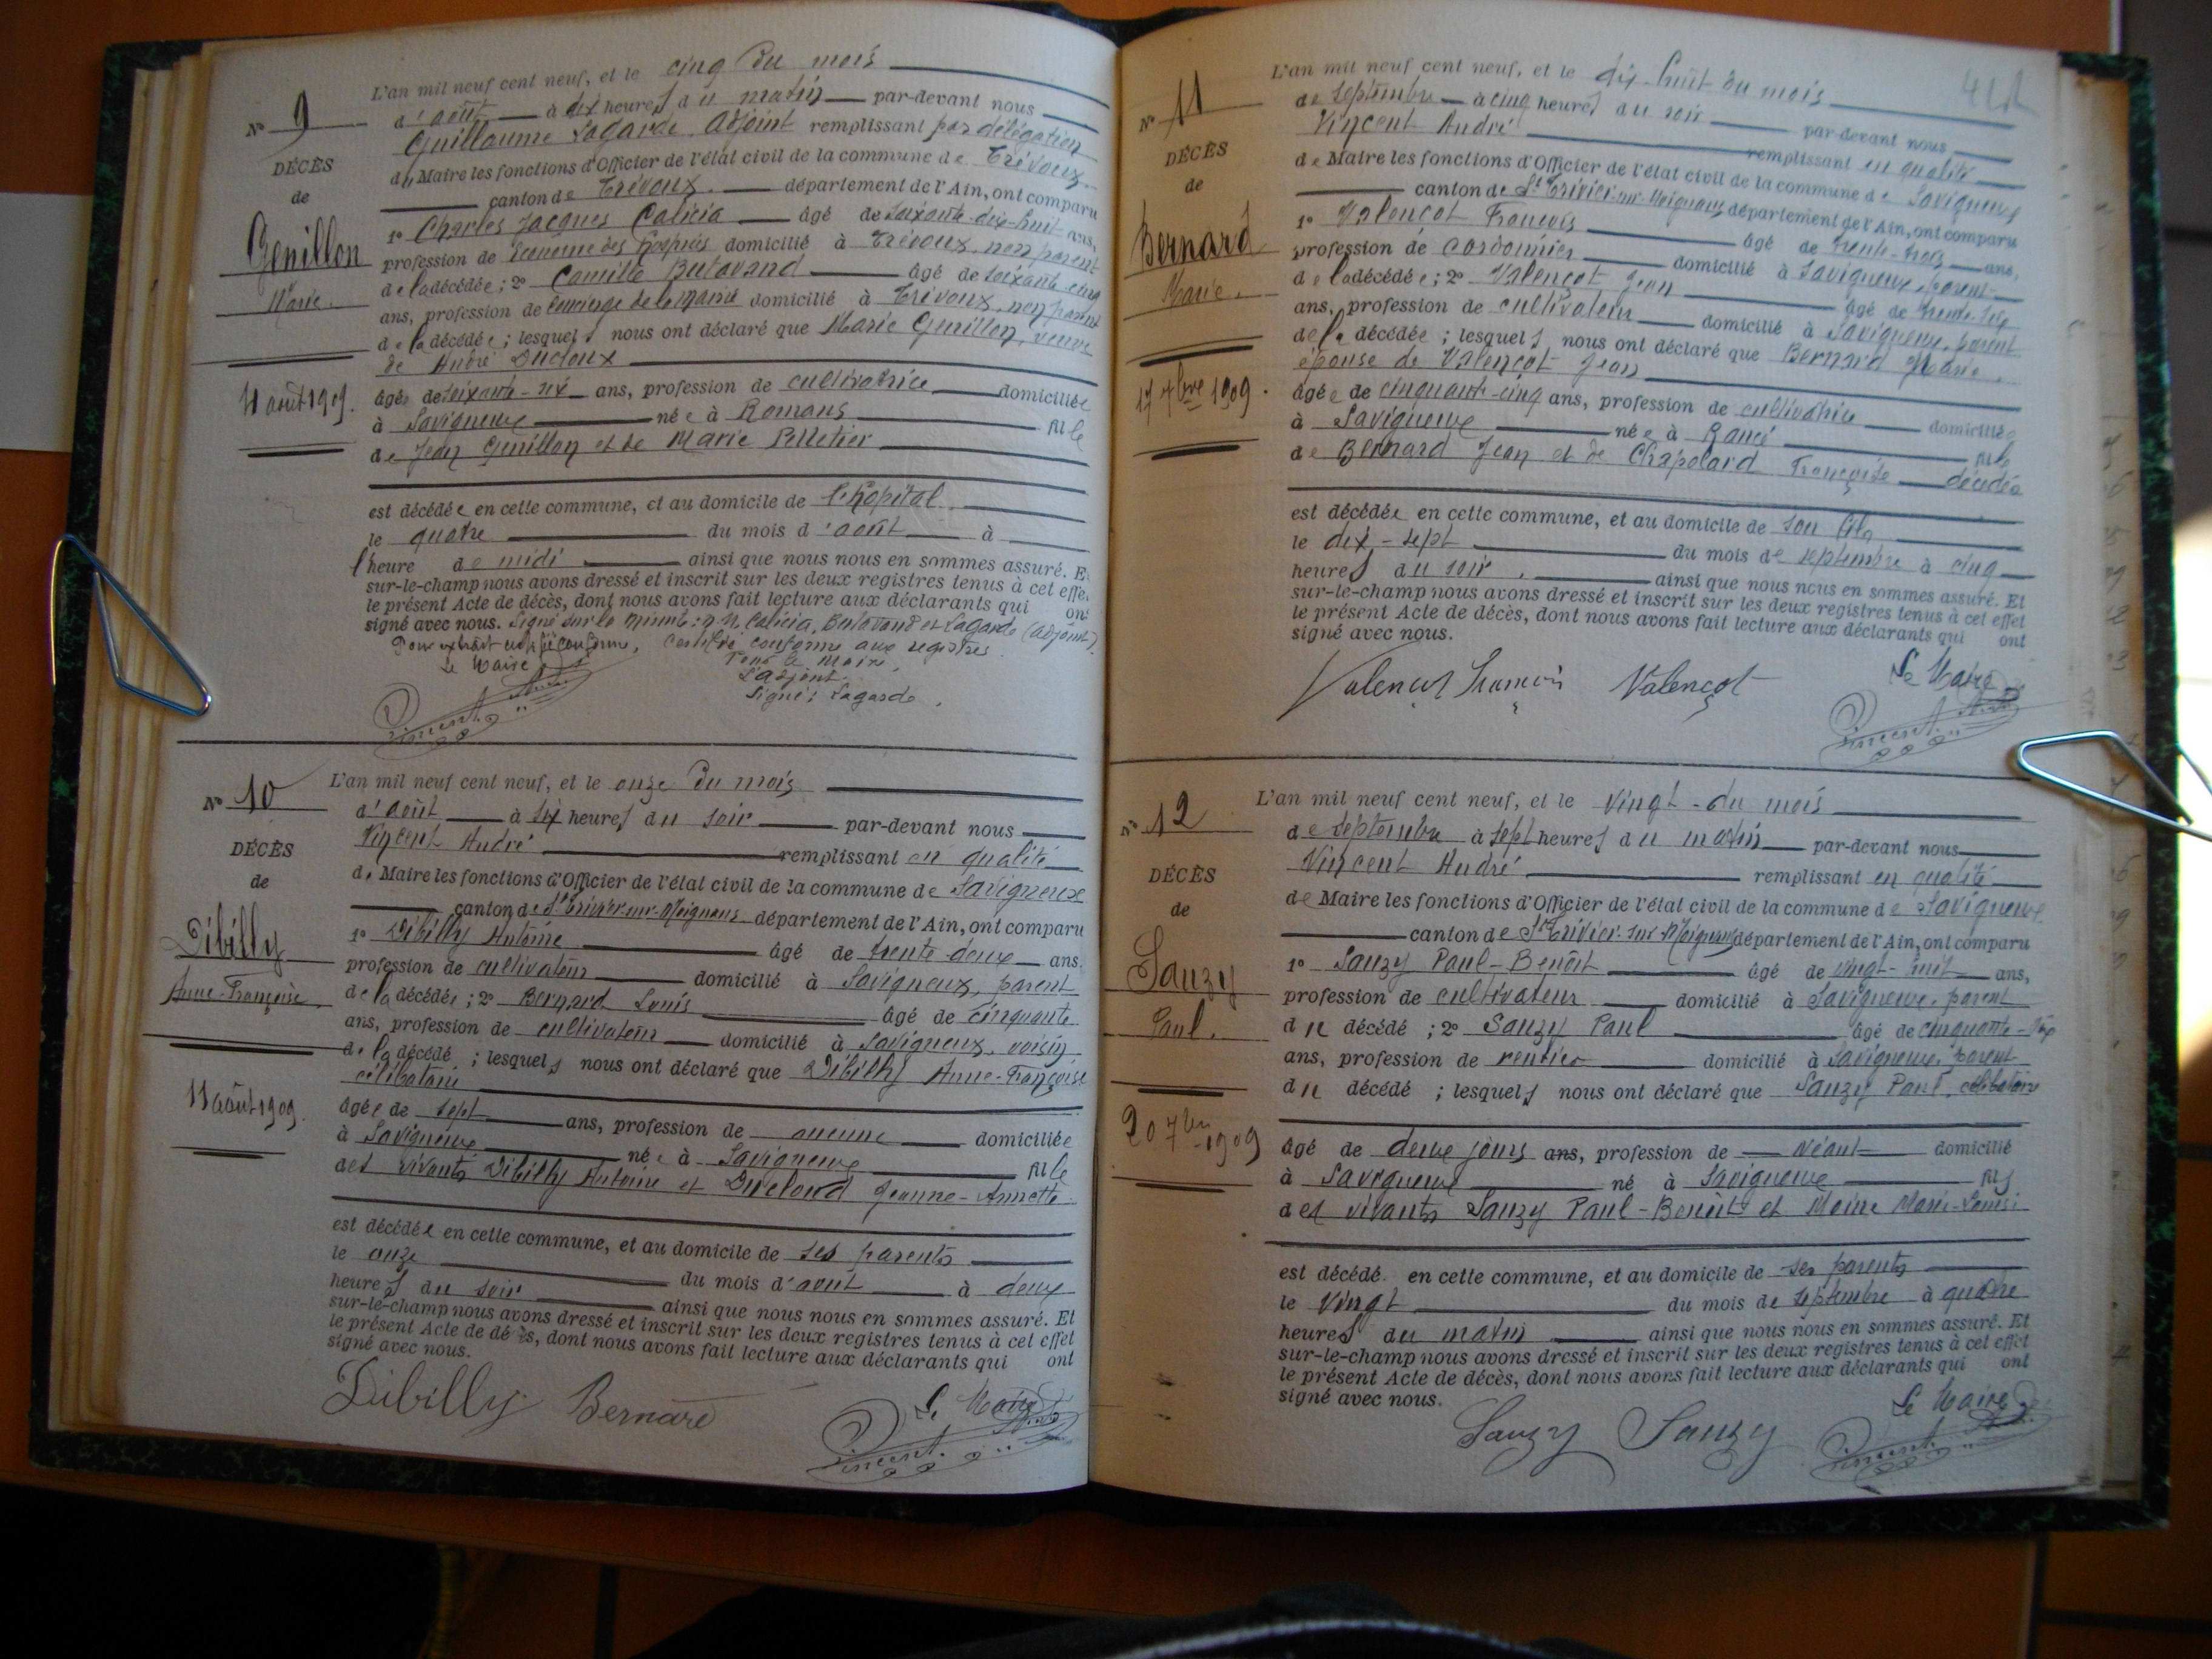 N° 9
DÉCÈS
de
Genillon
Marie.
4 août 1909.
L'an mil neuf cent neuf, et le cinq du mois
d'août à dix heures du matin par-devant nous
Guillaume Lagarde, adjoint remplissant par délégation
du Maire les fonctions d'Officier de l'état civil de la commune de Trévoux
canton de Trévoux. département de l'Ain, ont comparu
1° Charles Jacques Calicia âgé de soixante-dix-huit ans,
profession de Econome des hospices domicilié à Trévoux, non parent
de la décédée ; 2° Camille Butavand âgé de soixante cinq
ans, profession de Concierge de la Mairie domicilié à Trévoux, non parent
de la décédée ; lesquels nous ont déclaré que Marie Genillon, veuve
de André Ducloux
âgée de soixante- ans, profession de cultivatrice domiciliée
à Savigneux née à Romans fille
de Jean Genillon et de Marie Pelletier
est décédée en cette commune, et au domicile de l'hôpital
le quatre du mois d'août à
l'heure de midi ainsi que nous nous en sommes assuré. Et
sur-le-champ nous avons dressé et inscrit sur les deux registres tenus à cet effet
le présent Acte de décès, dont nous avons fait lecture aux déclarants qui ont
signé avec nous. Signé sur la minute : M.M. Calicia, Butavand et Lagarde (adjoint).
Pour extrait conforme, certifié conforme aux registres
Le Maire Pour le Maire,
L'adjoint.
Signé : Lagarde.
Vincent
N° 10
DÉCÈS
de
Dibilly
Anne-Françoise.
11 août 1909.
L'an mil neuf cent neuf, et le onze du mois
d'août à six heures du soir par-devant nous
Vincent André remplissant en qualité
de Maire les fonctions d'Officier de l'état civil de la commune de Savigneux
canton de St Trivier-sur-Moignans département de l'Ain, ont comparu
1° Dibilly Antoine âgé de trente deux ans,
profession de cultivateur domicilié à Savigneux, parent
de la décédée ; 2° Bernard Louis âgé de cinquante
ans, profession de cultivateur domicilié à Savigneux, voisin
de la décédé ; lesquels nous ont déclaré que Dibilly Anne-Françoise
célibataire
âgée de sept ans, profession de aucune domiciliée
à Savigneux née à Savigneux fille
des vivants Dibilly Antoine et Jeanne-Annette
est décédée en cette commune, et au domicile de ses parents
le onze du mois d'août à deux
heures du soir ainsi que nous nous en sommes assuré. Et
sur-le-champ nous avons dressé et inscrit sur les deux registres tenus à cet effet
le présent Acte de décès, dont nous avons fait lecture aux déclarants qui ont
signé avec nous.
Dibilly Bernard Le Maire
Vincent
N° 11
DÉCÈS
de
Bernard
Marie.
17 7bre 1909.
L'an mil neuf cent neuf, et le dix-huit du mois
de septembre à cinq heures du soir par-devant nous
Vincent André remplissant en qualité
de Maire les fonctions d'Officier de l'état civil de la commune de Savigneux
canton de St Trivier-sur-Moignans département de l'Ain, ont comparu
1° Valençot François âgé de trente-trois ans,
profession de cordonnier domicilié à Savigneux, parent
de la décédée ; 2° Valençot Jean âgé de trente-six
ans, profession de cultivateur domicilié à Savigneux, parent
de la décédée ; lesquels nous ont déclaré que Bernard Marie,
épouse de Valençot Jean
âgée de cinquante-cinq ans, profession de cultivatrice domiciliée
à Savigneux née à Rancé fille
de Bernard Jean et de Chapolard Françoise décédés
est décédée en cette commune, et au domicile de son fils
le dix-sept du mois de septembre à cinq
heures du soir, ainsi que nous nous en sommes assuré. Et
sur-le-champ nous avons dressé et inscrit sur les deux registres tenus à cet effet
le présent Acte de décès, dont nous avons fait lecture aux déclarants qui ont
signé avec nous.
Valençot François Valençot Le Maire
Vincent
N° 12
DÉCÈS
de
Sauzy
Paul.
20 7bre 1909
L'an mil neuf cent neuf, et le vingt-du mois
de septembre à sept heures du matin par-devant nous
Vincent André remplissant en qualité
de Maire les fonctions d'Officier de l'état civil de la commune de Savigneux
canton de St Trivier-sur-Moignans département de l'Ain, ont comparu
1° Sauzy Paul-Benoît âgé de vingt-huit ans,
profession de cultivateur domicilié à Savigneux, parent
du décédé ; 2° Sauzy Paul âgé de cinquante-six
ans, profession de rentier domicilié à Savigneux, parent
du décédé ; lesquels nous ont déclaré que Sauzy Paul, célibataire
âgé de deux jours ans, profession de Néant domicilié
à Savigneux né à Savigneux fils
des vivants Sauzy Paul-Benoît et Moine Marie-Louise
est décédé en cette commune, et au domicile de ses parents
le vingt du mois de septembre à quatre
heures du matin ainsi que nous nous en sommes assuré. Et
sur-le-champ nous avons dressé et inscrit sur les deux registres tenus à cet effet
le présent Acte de décès, dont nous avons fait lecture aux déclarants qui ont
signé avec nous.
Sauzy Sauzy Le Maire
Vincent